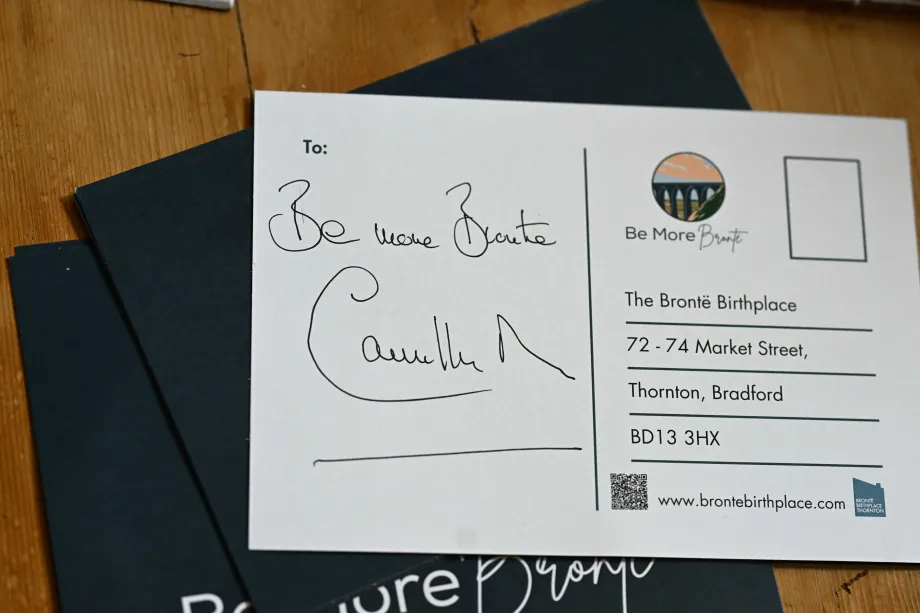 To:
Be more Bronte
Camilla R
Be More Brontë
The Brontë Birthplace
72 - 74 Market Street,
Thornton, Bradford
BD13 3HX
www.brontebirthplace.com
BRONTË
BIRTHPLACE
THORNTON
Be More Brontë